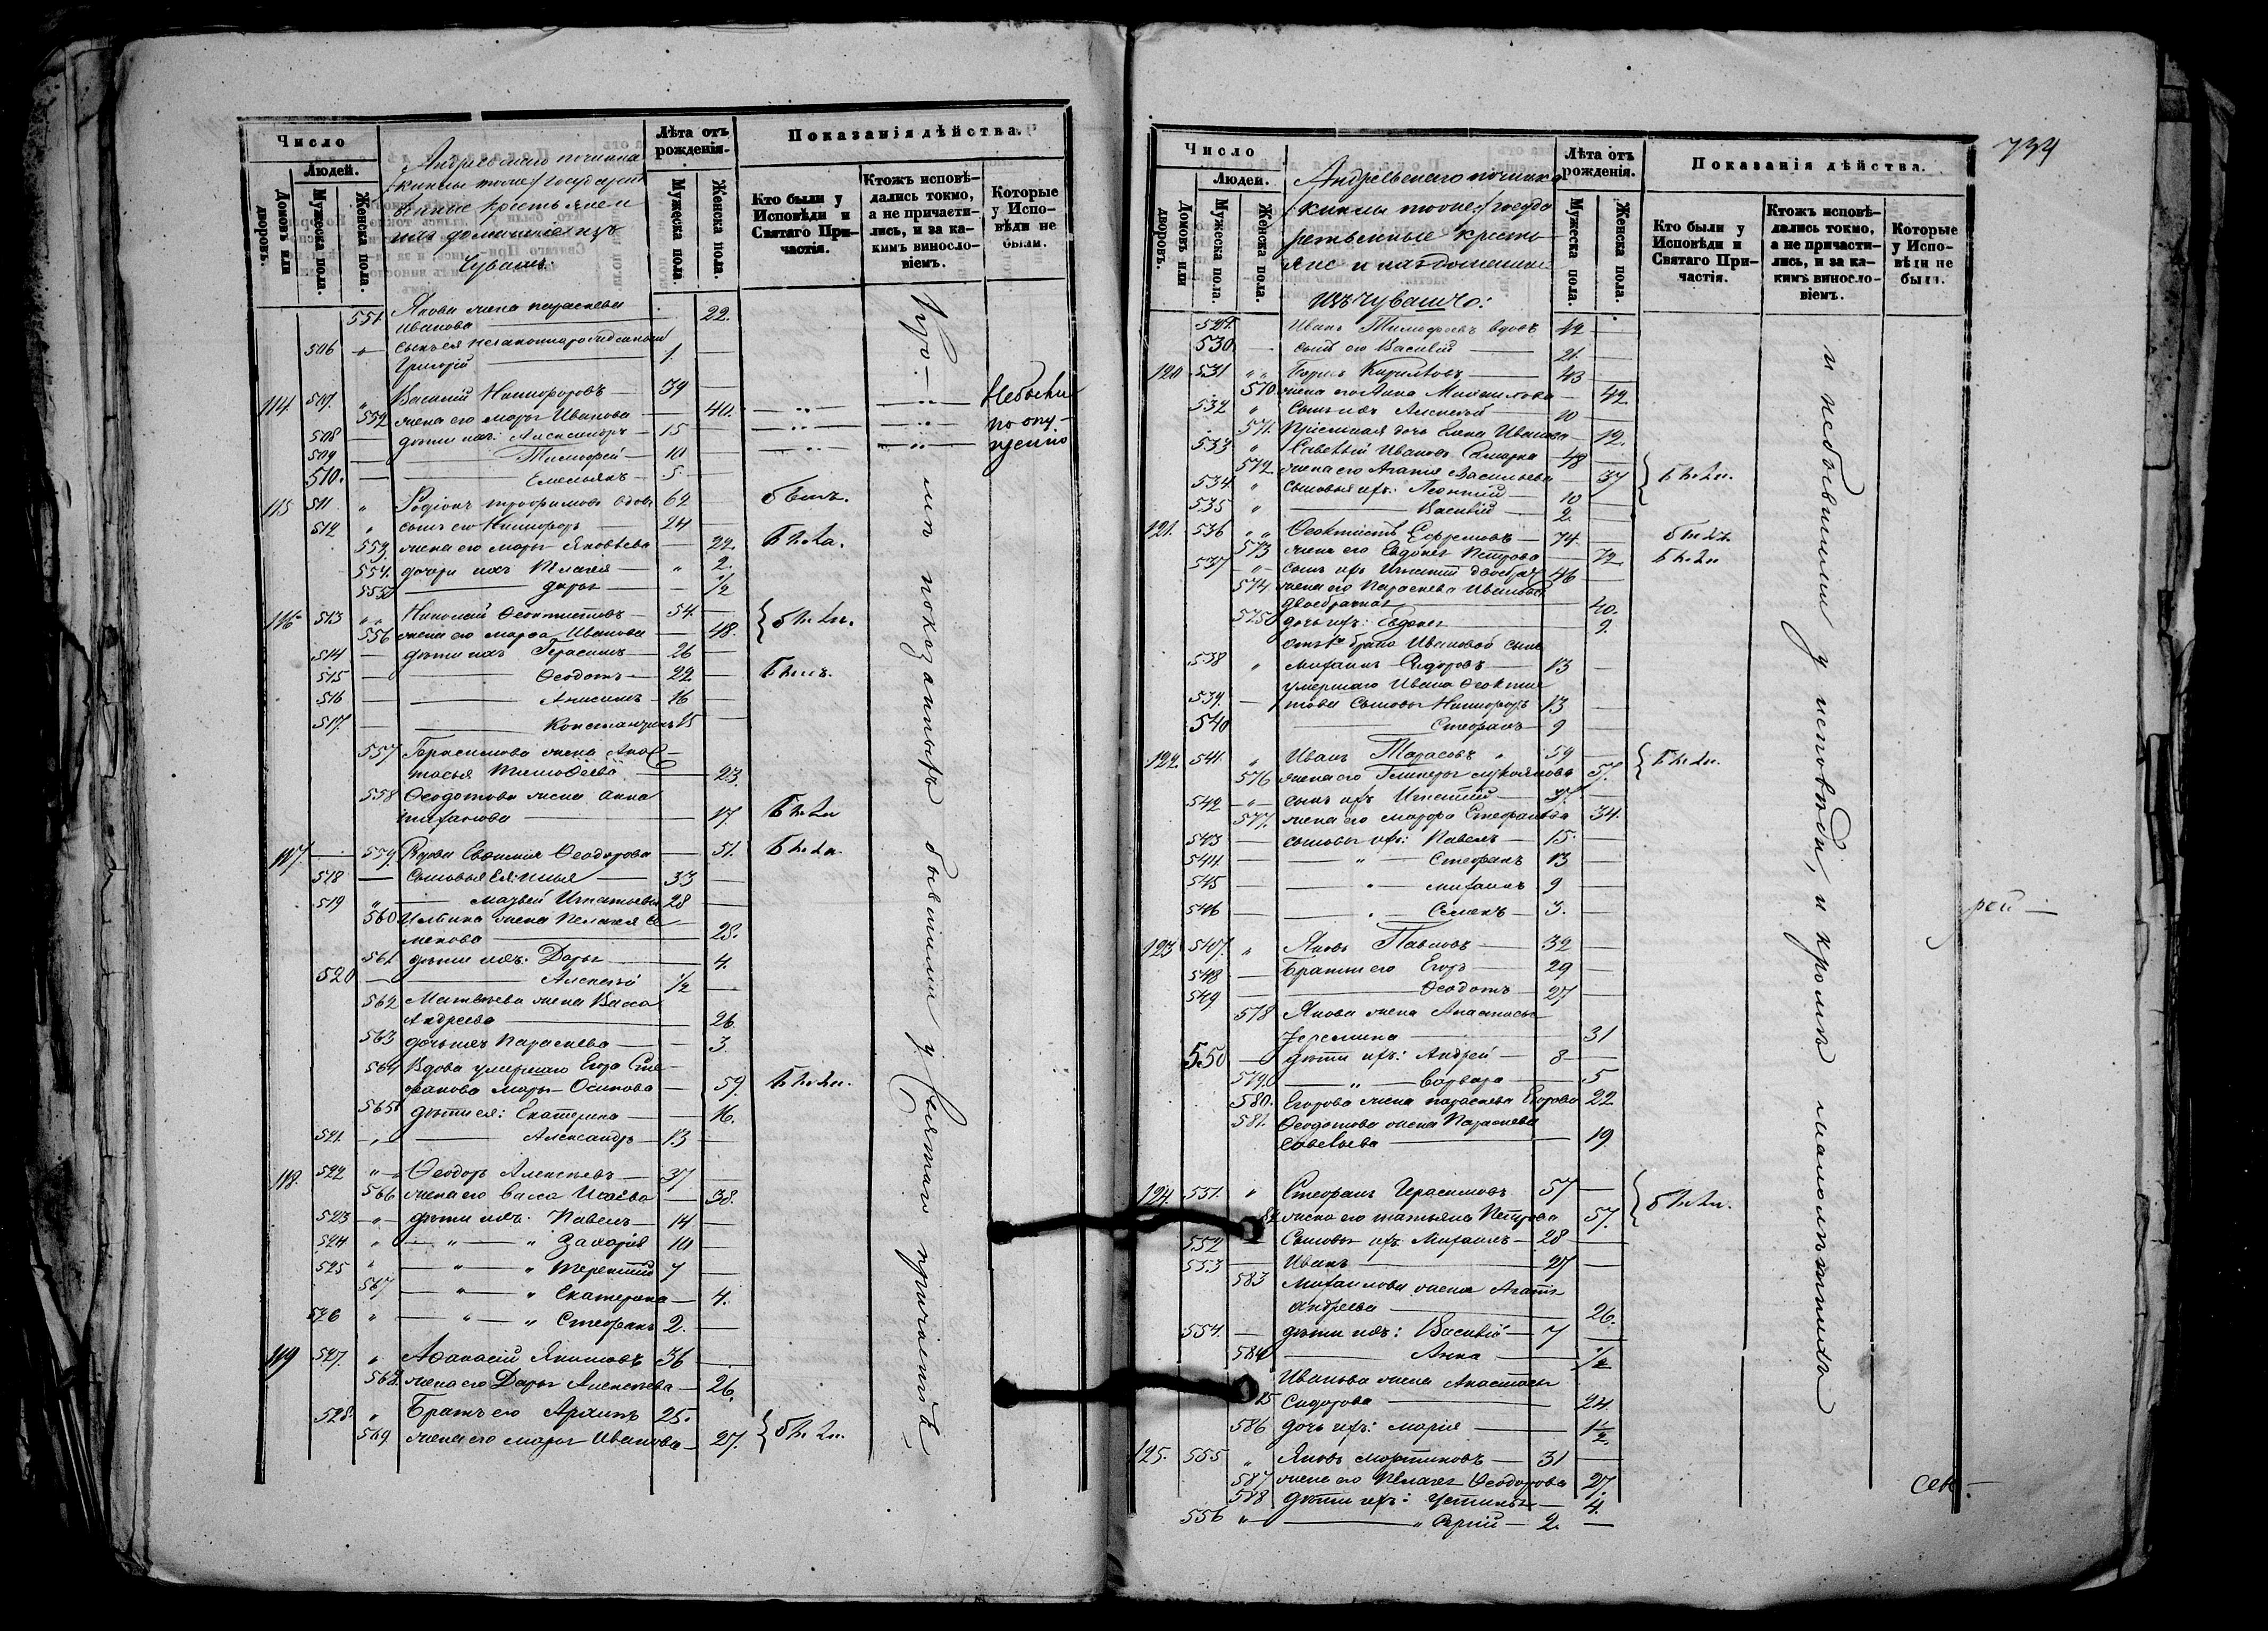 Число
Людей.
Домовъ или дворовъ.
Мужеска пола.
Женска пола.
Лѣта отъ рожденія.
Мужеска пола.
Женска пола.
Показанія дѣйства.
Кто были у Исповѣди и Святаго Причастія.
Ктожъ исповѣдались токмо, а не причастились, и за какимъ винословіемъ.
Которые у Исповѣди не были.
Андреевскаго починка
государст
венные крестьяне и
ихъ домашніе изъ
Чувашъ.
551. Якова жена параскева
Иванова 22.
506 сынъ ея незаконнорожденный
Григорій 1.
114. 507. Василій Никифоровъ 39
552 жена его марья Иванова 40.
508 дѣти ихъ: Александръ 15
509 Тимофей 10
510. Емельянъ 5
Небыли
по опу
щенію
115 511 Родіонъ трофимовъ вдовъ 62 былъ.
512 сынъ его Никифоръ 24
553. жена его марья Яковлева 22.
554. дочери ихъ Пелагея 2.
555 дарья 1/2
116 513 Николай Ѳеоктистовъ 54
556 жена его марѳа Иванова 48.
514 дѣти ихъ Герасимъ 26
515 Ѳеодотъ 22
516 Анисимъ 16
517. Константинъ 15
557 Герасимова жена Анас
тасья Тимоѳеева 23.
558 Ѳеодотова жена анна
17.
117. 559. Вдова Евѳимія Ѳеодорова 51.
518 сыновья Ея: илья 33
519 матвей Игнатьевы 28
560 Ильина жена Пелагея Се
менова 28.
561 дѣти ихъ: Дарья 4.
520 Алексѣй 1/2
562 Матвѣева жена Васса
Андреева 26
563 дочь ихъ Параскева 3.
564 Вдова умершаго Егора Сте
фанова марья Осипова 59.
565 дѣти ея: Екатерина 16.
521. Александръ 13
118. 522 Ѳеодоръ Алексѣевъ 37
566 жена его васса Исаева 38.
523 дѣти ихъ: Павелъ 14
524 Захарія 10
525 терентій 7
567 Екатерина 4.
526 Стефанъ 2.
119 527. Аѳанасій Якимовъ 36
568. жена его Дарья Алексѣева 26.
528. Братъ его Архипъ 25.
569 жена его марья Иванова 27.
ми показаннхъ бывшими у Святаго причастія
734
Число
Людей.
Домовъ или дворовъ.
Мужеска пола.
Женска пола.
Лѣта отъ рожденія.
Мужеска пола.
Женска пола.
Показанія дѣйства.
Кто были у Исповѣди и Святаго Причастія.
Ктожъ исповѣдались токмо, а не причастились, и за какимъ винословіемъ.
Которые у Исповѣди не были.
Андреевскаго починка
госуда
рственные кресть
яне и ихъ домашніе
изъ чувашъ:
529. Иванъ Тимофеевъ вдовъ 42
530 сынъ его Василій 21.
120 531 Кириловъ 43
570. жена его Анна 42
532 Сынъ ихъ Алексѣй 10
571. Пріемная дочь Елена Иванова 12.
533 Савелій Ивановъ 48
572. жена его Агапія Васильева 37
534 сыновья ихъ: Леонтій 10
535 Василій 2.
121. 536 Ѳеоктистъ Ефремовъ 74
573 жена его Евдокія Петрова 72
537 сынъ ихъ Игнатій двоебрач. 46
574 жена его Параскева Иванова
двоебрачная 40.
575 дочь ихъ: Евдокія 9.
отъ 1го брака Ивановой сынъ
538 михаилъ Ѳедоровъ 13
умершаго Ивана Ѳеоктис
539. това Сыновья Никифоръ 13
540 Стефанъ 9
122. 541. Иванъ Тарасовъ 59
576 жена его Гликерья 57.
542 сынъ ихъ Игнатій 37.
577. жена его марфа Стефанова 34.
543 сыновья ихъ: Павелъ 15
544. Стефанъ 13
545 михаилъ 9
546 Семенъ 3.
123 547. Яковъ Павловъ 32
548 Братья его Егоръ 29
549 Ѳеодотъ 27
578 Якова жена Анастасья
31
550 дѣти ихъ: Андрей 8
579. варвара 5
580. Егорова жена параскева Егорова 22
581. Ѳеодотова жена Параскева
савельева 19
124. 551. Стефанъ Герасимовъ 57
жена его татьяна Петрова 57.
552 Сыновья ихъ Михаилъ 28
553 Иванъ 27
583 Михаилова жена Агапія
андреева 26.
554. дѣти ихъ: Василій 7
584 Анна 1/2
Иванова жена Анастасья
Сидорова 24.
586 дочь ихъ: марія 1 1/2.
125. 555 Яковъ мартиновъ 31
587 жена его Пелагея Ѳеодорова 27.
588 дѣти ихъ: Устинья 4.
556 Сергій 2.
и небывшими у исповѣди, и кромѣ малолѣтнихъ